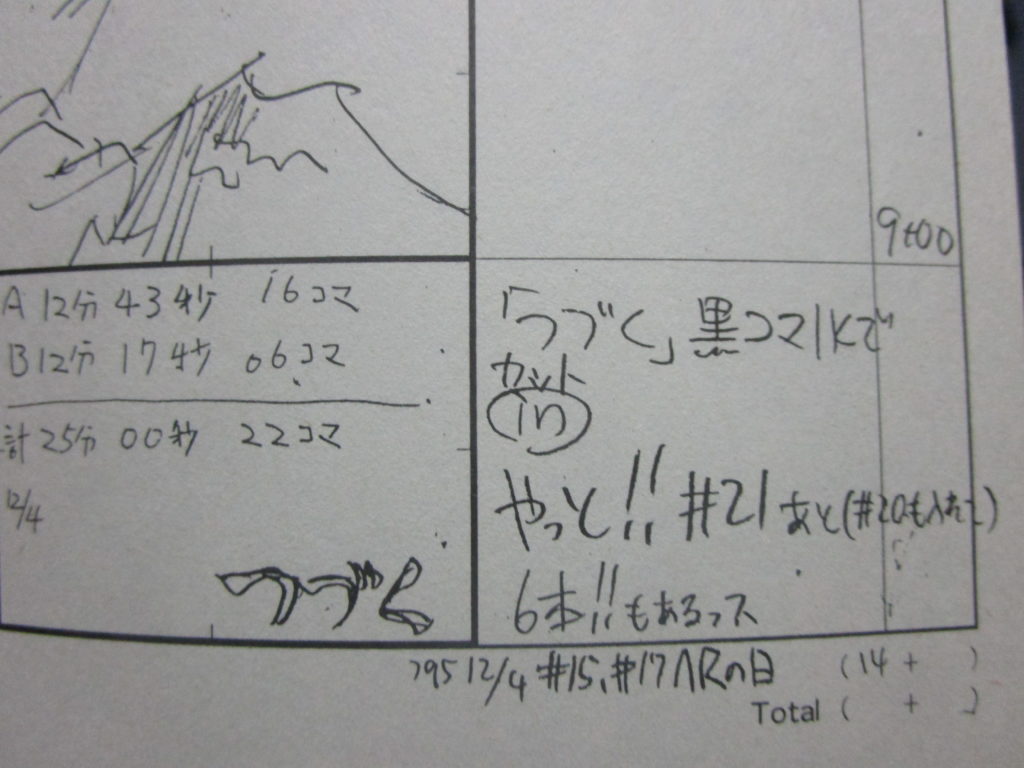 9+00
A 12分 43秒 16コマ
B 12分 17秒 06コマ
計 25分 00秒 22コマ
12/4
つづく
「つづく」黒コマ1Kで
カット
in
やっと!! #21 あと(#20も入れて)
6本!!もあるっス
'95 12/4 #15、#17 ARの日 (14 + )
Total ( + )